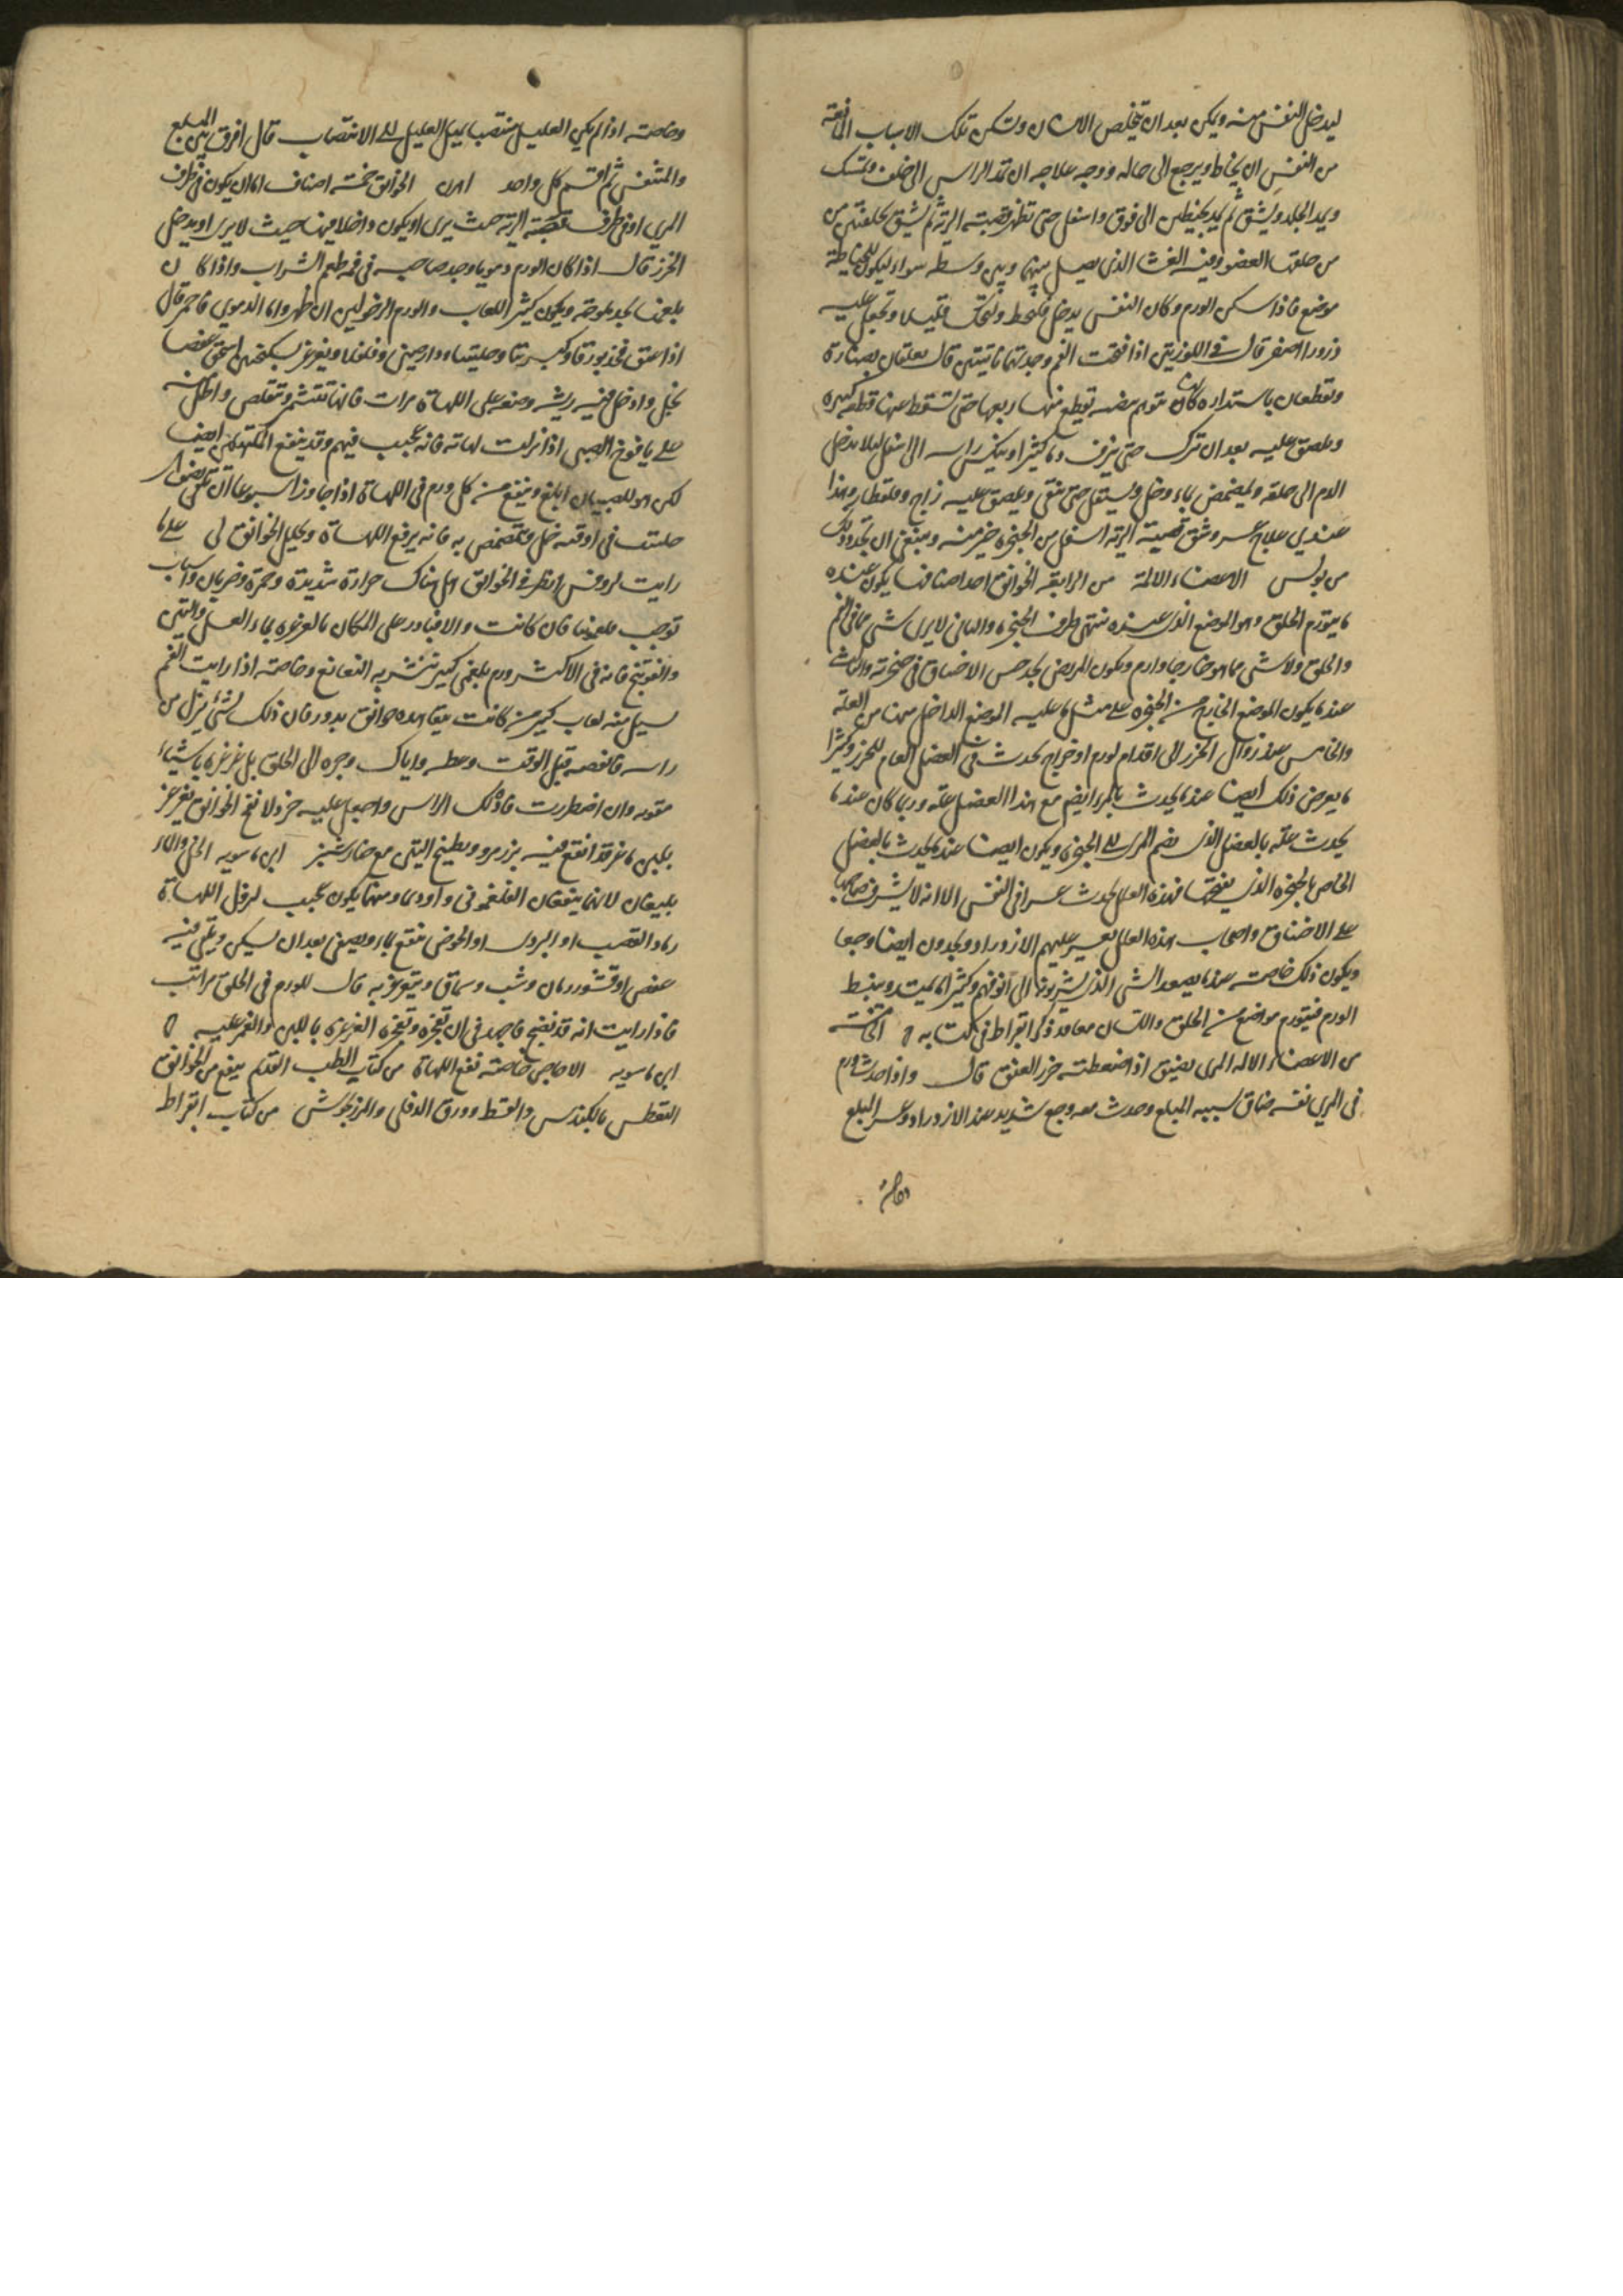 ليدخل النفس منه ويمكن بعد ان تخليص الانسان وتسكن تلك الاسباب المانعة
من النفس ان يخاط ويرجع الى حاله ووجه علاجه ان تمد الراس الى خلف وتمسك
ويمد الجلد ويشق ثم يمد بخيطين الى فوق واسفل حتى تظهر قصبة الرية ثم يشق بين حلقتين من
من حلقها العضروفية الغشا الذي يصل بينهما وبين وسطه سواء ليكون للخياطة
موضع فاذا سكن الورم وكان النفس يدخل فليخط ويمسك قليلا وتجعل عليه
ذرورا اصفر قال في اللوزتين اذا فتحت الفم وجدتهما ناتيتين قال يعلقان بصنارة
وتقطعان باستدارة كان يقطع منها ربعها حتى تسقط عنها قطعة كبيرة
ويلصق عليه بعد ان تترك حتى ينزف دما كثيرا وينكس راسه الى اسفل ليلا يدخل
الدم الى حلقه وليمضمض بماء وخل ويستعمل حتى تنقى ويلصق عليه زاج وقلقطار وهذا
عندي علاج عسر وشق قصبة الرية اسفل من الحنجرة خير منه وينبغي ان يحدد ذلك
من بولس الاعضاء الالمة من الرابعة الخوانيق احد اصنافها يكون عنده
ما يتورم الحلق وهو الموضع الذي عنده منتهى طرف الحنجرة والثاني لا يرى شي مما في الفم
والحلق ولا شي مما هو خارجا وارم ويكون المريض يجد حس الاختناق في حنجرته والثالث
عندما يكون الموضع الخارج من الحنجرة على مثل ما عليه الموضع الداخل منها من العلة
والخامس عند زوال الخرز الى اقدام لورم او خراج يحدث في العضل العام للخرز وكثيرا
ما يعرض ذلك ايضا عندما يحدث بالمرى ايضم مع هذا العضل علة وربما كان عندما
يحدث علة بالعضل الذي يضم المرى الى الحنجرة ويكون ايضا عندما يحدث بالعضل
الخاص بالحنجرة الذي يفتحها فهذه العلل يحدث عسرا في النفس الا انه لا يشرف صاحبها
على الاختناق واصحاب هذه العلل يعسر عليهم الازدراد ويجدون ايضا وجعا
ويكون ذلك خاصة عندما يصعد الشي الذي يشربونه الى انوفهم وكثيرا ما يمتد وينبسط
الورم فيتورم مواضع من الحلق واللسان معا قد ذكر ابقراط في كتابه الخامسة
من الاعضاء الالمة المرى يضيق اذا ضغطته خرز العنق قال واذا حدث ورم
في المرى نفسه ضاق بسببه المبلع وحدث معه وجع شديد عند الازدراد وعسر البلع
وخاصة
وخاصة اذا لم يكن العليل منتصبا يميل العليل الى الانتصاب قال افرق بين المبلع
والمتنفس ثم اقسم كل واحد اهرن الخوانيق خمسة اصناف اما ان يكون في طرف
المري او في طرف قصبة الرية حيث يرى او يكون داخلا فيهما حيث لا يرى او يدخل
الخرز قال اذا كان الورم دمويا وجد صاحبه في فمه طعم الشراب واذا كان
بلغميا يجد ملوحة ويكون كثير اللعاب والورم الرخو لين ان ظهر واما الدموي فاحمر قال
اذا عتق فخذ بورقا وكبريتا وحلتيتا ودارصيني وفلفلا ويغرغر بسكنجبين اسحق عفصا
بخل وادخل فيه ريشة وضعه على اللهاة مرات فانها تتشمر وتتقلص واطله
على يافوخ الصبي اذا نزلت لهاته فانه عجيب فيهم وقد ينفع المكتهلين ايضا
لكن هو للصبيان ابلغ وينفع من كل ورم في اللهاة اذا جاوز اسبوعا ان تتمضمض
حلتيت في اوقية خل ويتمضمض به فانه يرفع اللهاة ويحلل الخوانيق لى على ما
رايت لروفس انظر في الخوانيق اهل هناك حرارة شديدة وحمرة وضربان واسباب
توجب ملغيا فان كانت والا فبادر على المكان بالغرغرة بماء العسل والتين
والفوتنج فانه في الاكثر ورم بلغمي كبير تنتشر به النغانغ وخاصة اذا رايت الفم
يسيل منه لعاب كثير من كانت يتعاهده خوانيق بدور فان ذلك لشيء ينزل من
راسه فافصده قبل الوقت وعطسه واياك وجره الى الحلق بل غرغره باشياء
مقوية وان اضطررت فاذلك الراس واجعل عليه خردلا نفخ الخوانيق يغرغر
بلبن ماعز قد انقع فيه بزر مرو وبطبيخ التين مع خيار شنبر ابن ماسويه الخل والماء
يليقان لانهما ينفعان الفلغموني واوديما ومنهما يكون عجيب لنزول اللهاة
رماد القصب او البردى او الحوض ينقع بماء ويصفى بعد ان يسكن ويلقى فيه
عفص او قشور رمان وشب وسماق ويتغرغر به قال للورم في الحلق مراتب
فاذا رايت انه قد نضج فاجهد في ان تفجره وتفجره الغرغرة باللبن والغمز عليه
ابن ماسويه الاجاص خاصته نفع اللهاة من كتاب الطب القديم ينفع من الخوانيق
التعطس بالكندس والقسط وورق الدفلى والمرزنجوش من كتاب ابقراط